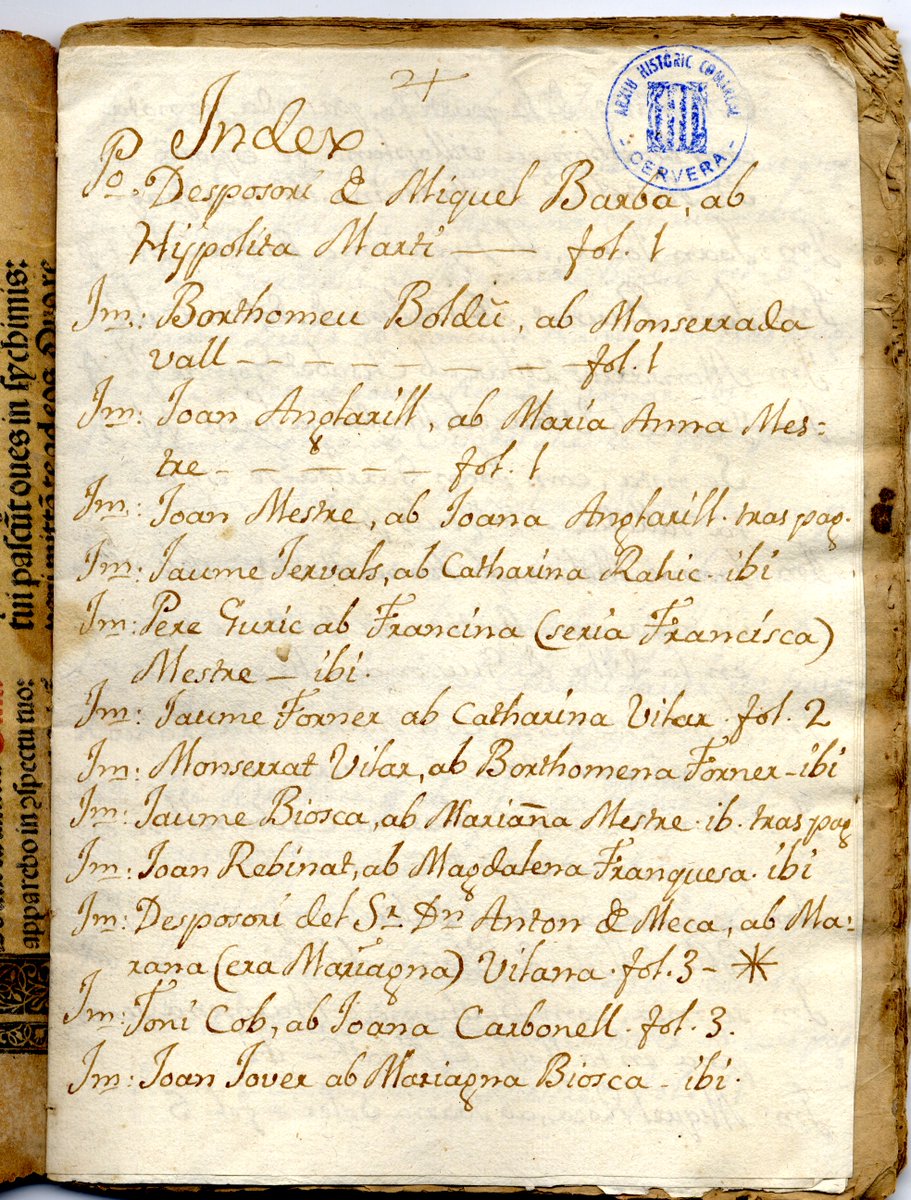 Index
ARXIU HISTORIC COMARCAL
- CERVERA -
Po. Desposori & Miquel Barba, ab
Hyppolita Marti —— fol. 1
Im: Borthomeu Boldũ, ab Monserrada
vall — — — — — — — fol. 1
Im: Joan Angłarill, ab Maria Anna Mes=
tre — — — — — fol. 1
Im: Joan Mestre, ab Joana Angłarill. tras pag.
Im: Jaume Jervals, ab Catharina Rahic. ibi
Im: Pere Guric ab Francina (seria Francisca)
Mestre — ibi.
Im: Jaume Forner ab Catharina Vilar. fol. 2
Im: Monserrat Vilar, ab Borthomena Forner - ibi
Im: Jaume Biosca, ab Mariañna Mestre. ib. tras pag
Im: Joan Rebinat, ab Magdalena Franquesa. ibi
Im: Desposori del Sr. Dn. Anton & Meca, ab Ma-
rana (era Mariagna) Vilana. fol. 3 - *
Im: Toni Cob, ab Joana Carbonell. fol. 3.
Im: Joan Jover ab Mariagna Biosca - ibi.
tui pascũt oues in sychimis:
apparebo in conspectu tuo: